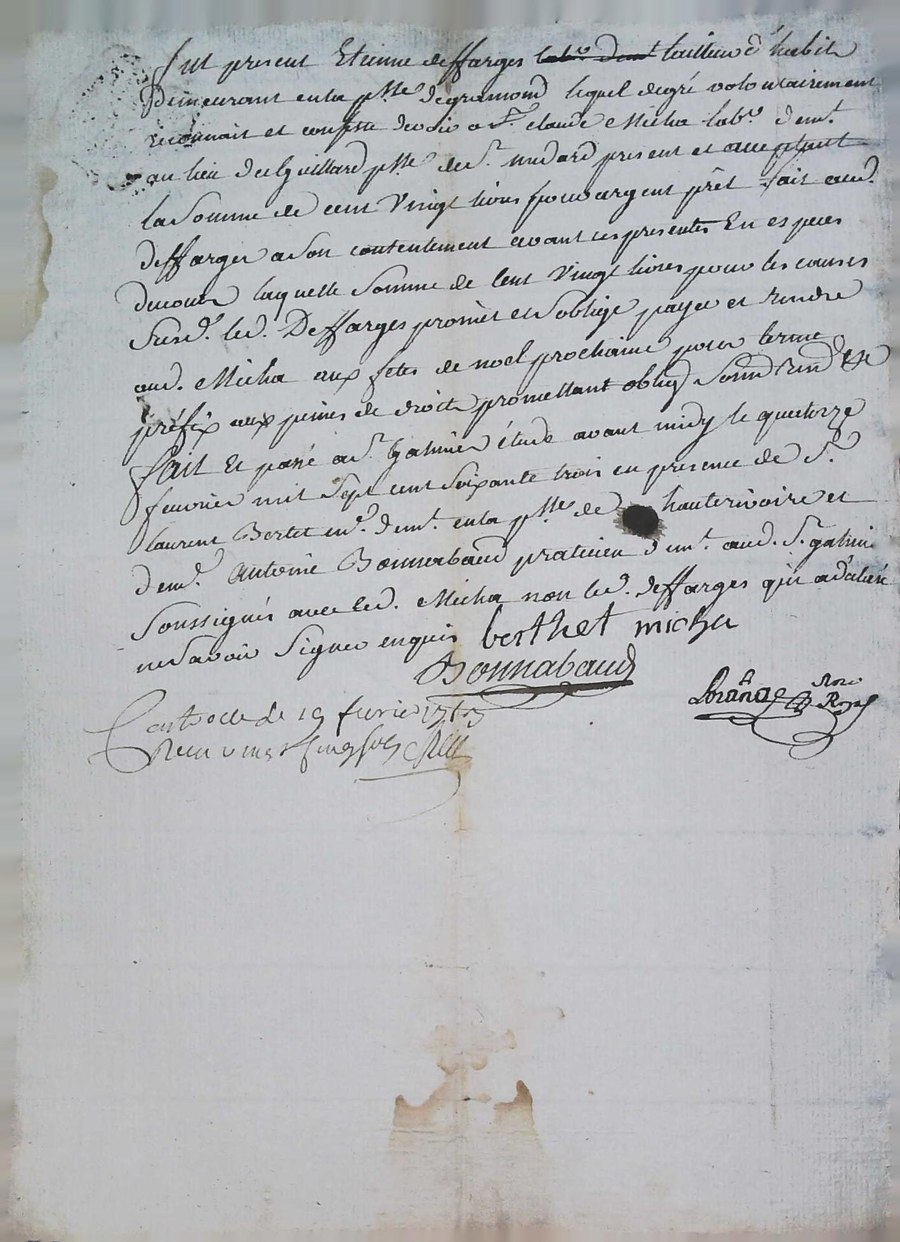 fut present Etienne deffarges labr. demt tailleur d'habit
Demeurant en la psse. degramond lequel degré volontairement
reconnait et confesse devoir a Sr. claude Micha labr. demt.
au lieu du Guillard psse. de St. medard present et acceptant
la Somme de cent Vingt livres pour argent prêt fait aud.
deffarges a Son contentement avant ces presentes En especes
decours laquelle Somme de Cent Vingt livres pour les causes
Susd. led. Deffarges promet et S'oblige payer et rendre
aud. Micha aux fetes de noel prochaine pour terme
préfix aux peines de droit promettant oblig Soumd Rend &c
fait Et passé a St. Galmier étude avant midy le quatorze
feuvrier mil Sept cent Soixante trois en presence de Sr.
laurent Bertet md. demt. en la psse. de hauterivoire et
de me. Antoine Bonnabaud praticien demt. aud. St. galmier
Soussignés avec led. Micha non led. deffarges qui a déclaré
ne Savoir Signer enquis berthet micha
Bonnabaud
Nore
Royal
Con le 19 fuvrie 1763
Recu